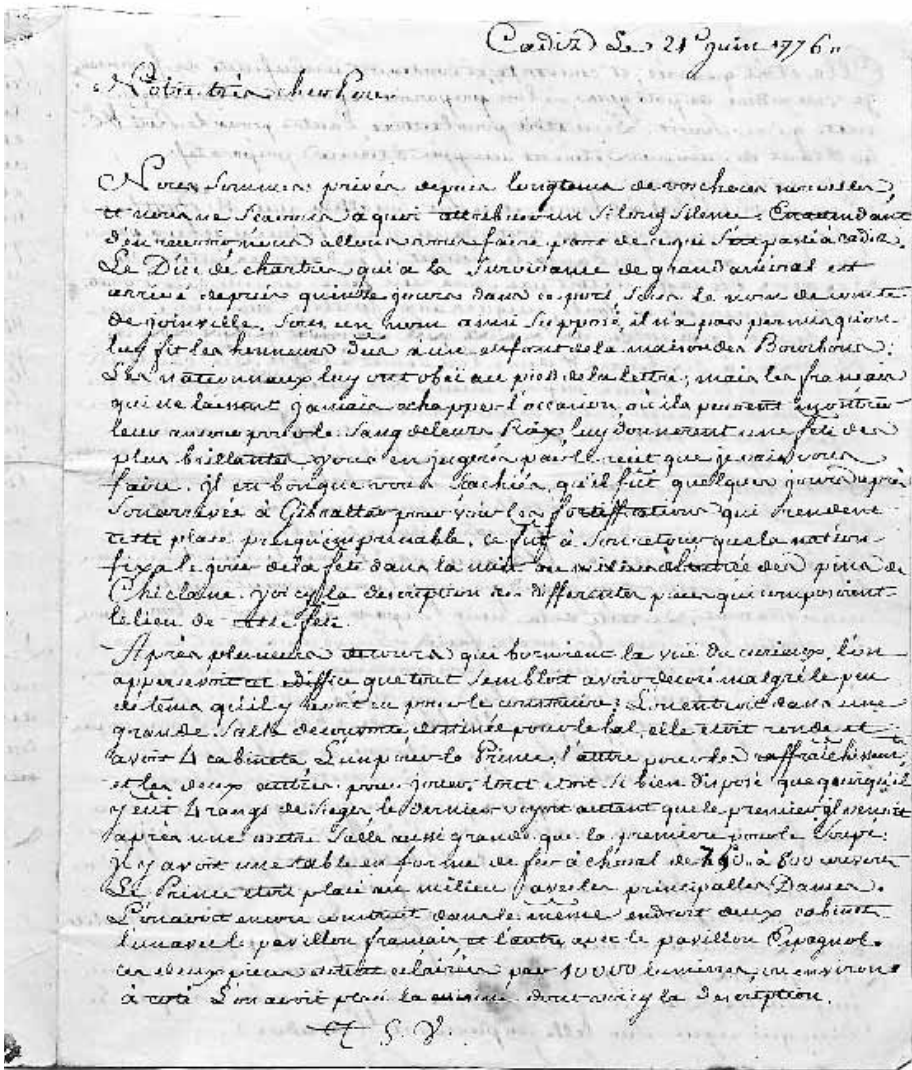 Cadiz Le 21e Juin 1776,,
Notre très cher Pere
Nous Sommes privés depuis longtems de vos cheres nouvelles,
et nous ne Scavons à quoi attribuer un Si long Silence. En attendant
d'en recevoir nous allons vous faire part de ce qui S'est passé à cadix.
Le Duc de chartres qui a la Survivance de grand amiral est
arrivé depuis quinze jours dans ce port, Sous le nom de comte
de joinville. Sous un nom ainsi Supposé, il n'a pas permis qu'on
luy fit les honneurs dus à un enfant de la maison des Bourbons;
Les nationnaux luy ont obéi au pied de la lettre; mais les francais
qui ne laissent jamais echapper l'occasion, où ils peuvent montrer
leur amour pour le Sang de leurs Rois, luy donnerent une fête des
plus brillantes, vous en jugerés par le recit que je vais vous
faire. Il est bon que vous Sachiés, qu'il fût quelques jours après
Son arrivée à Gibraltar pour voir les fortiffications qui rendent
cette place presqu'imprenable. ce fut à Son retour que la nation
fixa le jour de la fête dans la nuit au milieu des pins de
Chiclane. voicy la description des differentes pieces qui composoient
le lieu de cette fête.
Après plusieurs detours qui bornoient la vuë du curieux, l'on
appercevoit cet ediffice que tout Sembloit avoir decoré malgré le peu
de tems qu'il y avoit eu pour le construire; L'on entroit dans une
grande Salle decouverte destinée pour le bal, elle etoit ronde et
avoit 4 cabinets L'un pour le Prince, l'autre pour les raffraichissemens,
et les deux autres pour jouer, tout etoit Si bien disposé que quoiqu'il
y eut 4 rangs de Sieges le dernier voyoit autant que le premier. il venoit
après une autre Salle aussi grande que la premiere pour le Soupé;
Il y avoit une table en forme de fer à cheval de 750. à 800 couverts
Le Prince etoit placé au milieu avec les principalles Dames.
L'on avoit encore construit dans le même endroit deux cabinets
l'un avec le pavillon francais et l'autre avec le pavillon Espagnol.
ces deux pieces etoient eclairées par 10000 lumieres, ou environ
à coté L'on avoit placé la cuisine dont voicy la description.
T. S. V.